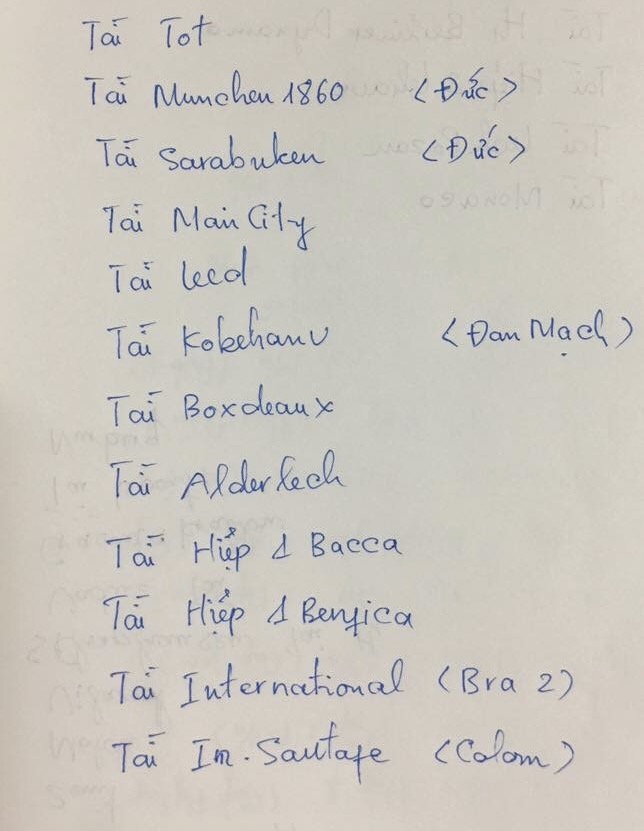 Tài Tot
Tài Munchen 1860 <Đức>
Tài Sarabuken <Đức>
Tài Man City
Tài Leed
Tài Kobehanv <Đan Mạch>
Tài Boxdeaux
Tài Alderlech
Tài Hiệp 1 Bacca
Tài Hiệp 1 Benfica
Tài International (Bra 2)
Tài In. Santafe (Colom)